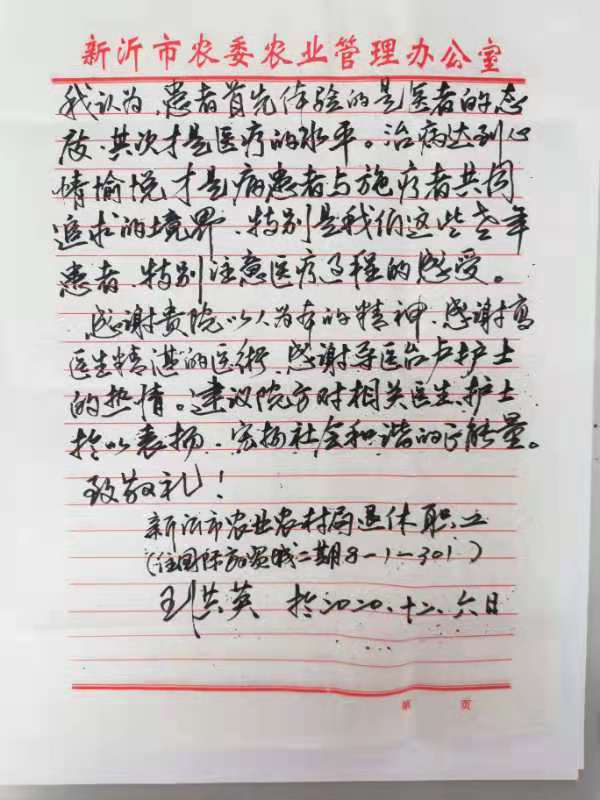 新沂市农委农业管理办公室
我认为,患者首先体验的是医者的态
度,其次才是医疗的水平。治病达到心
情愉悦才是病患者与施疗者共同
追求的境界,特别是我们这些老年
患者,特别注意医疗过程的感受。
感谢贵院以人为本的精神,感谢高
医生精湛的医术,感谢导医台卢护士
的热情。建议院方对相关医生、护士
给以表扬,宏扬社会和谐的正能量。
致敬礼!
新沂市农业农村局退休职工
(住国际商贸城二期8-1-301)
刘洪英 于2020.十二.六日
第 页